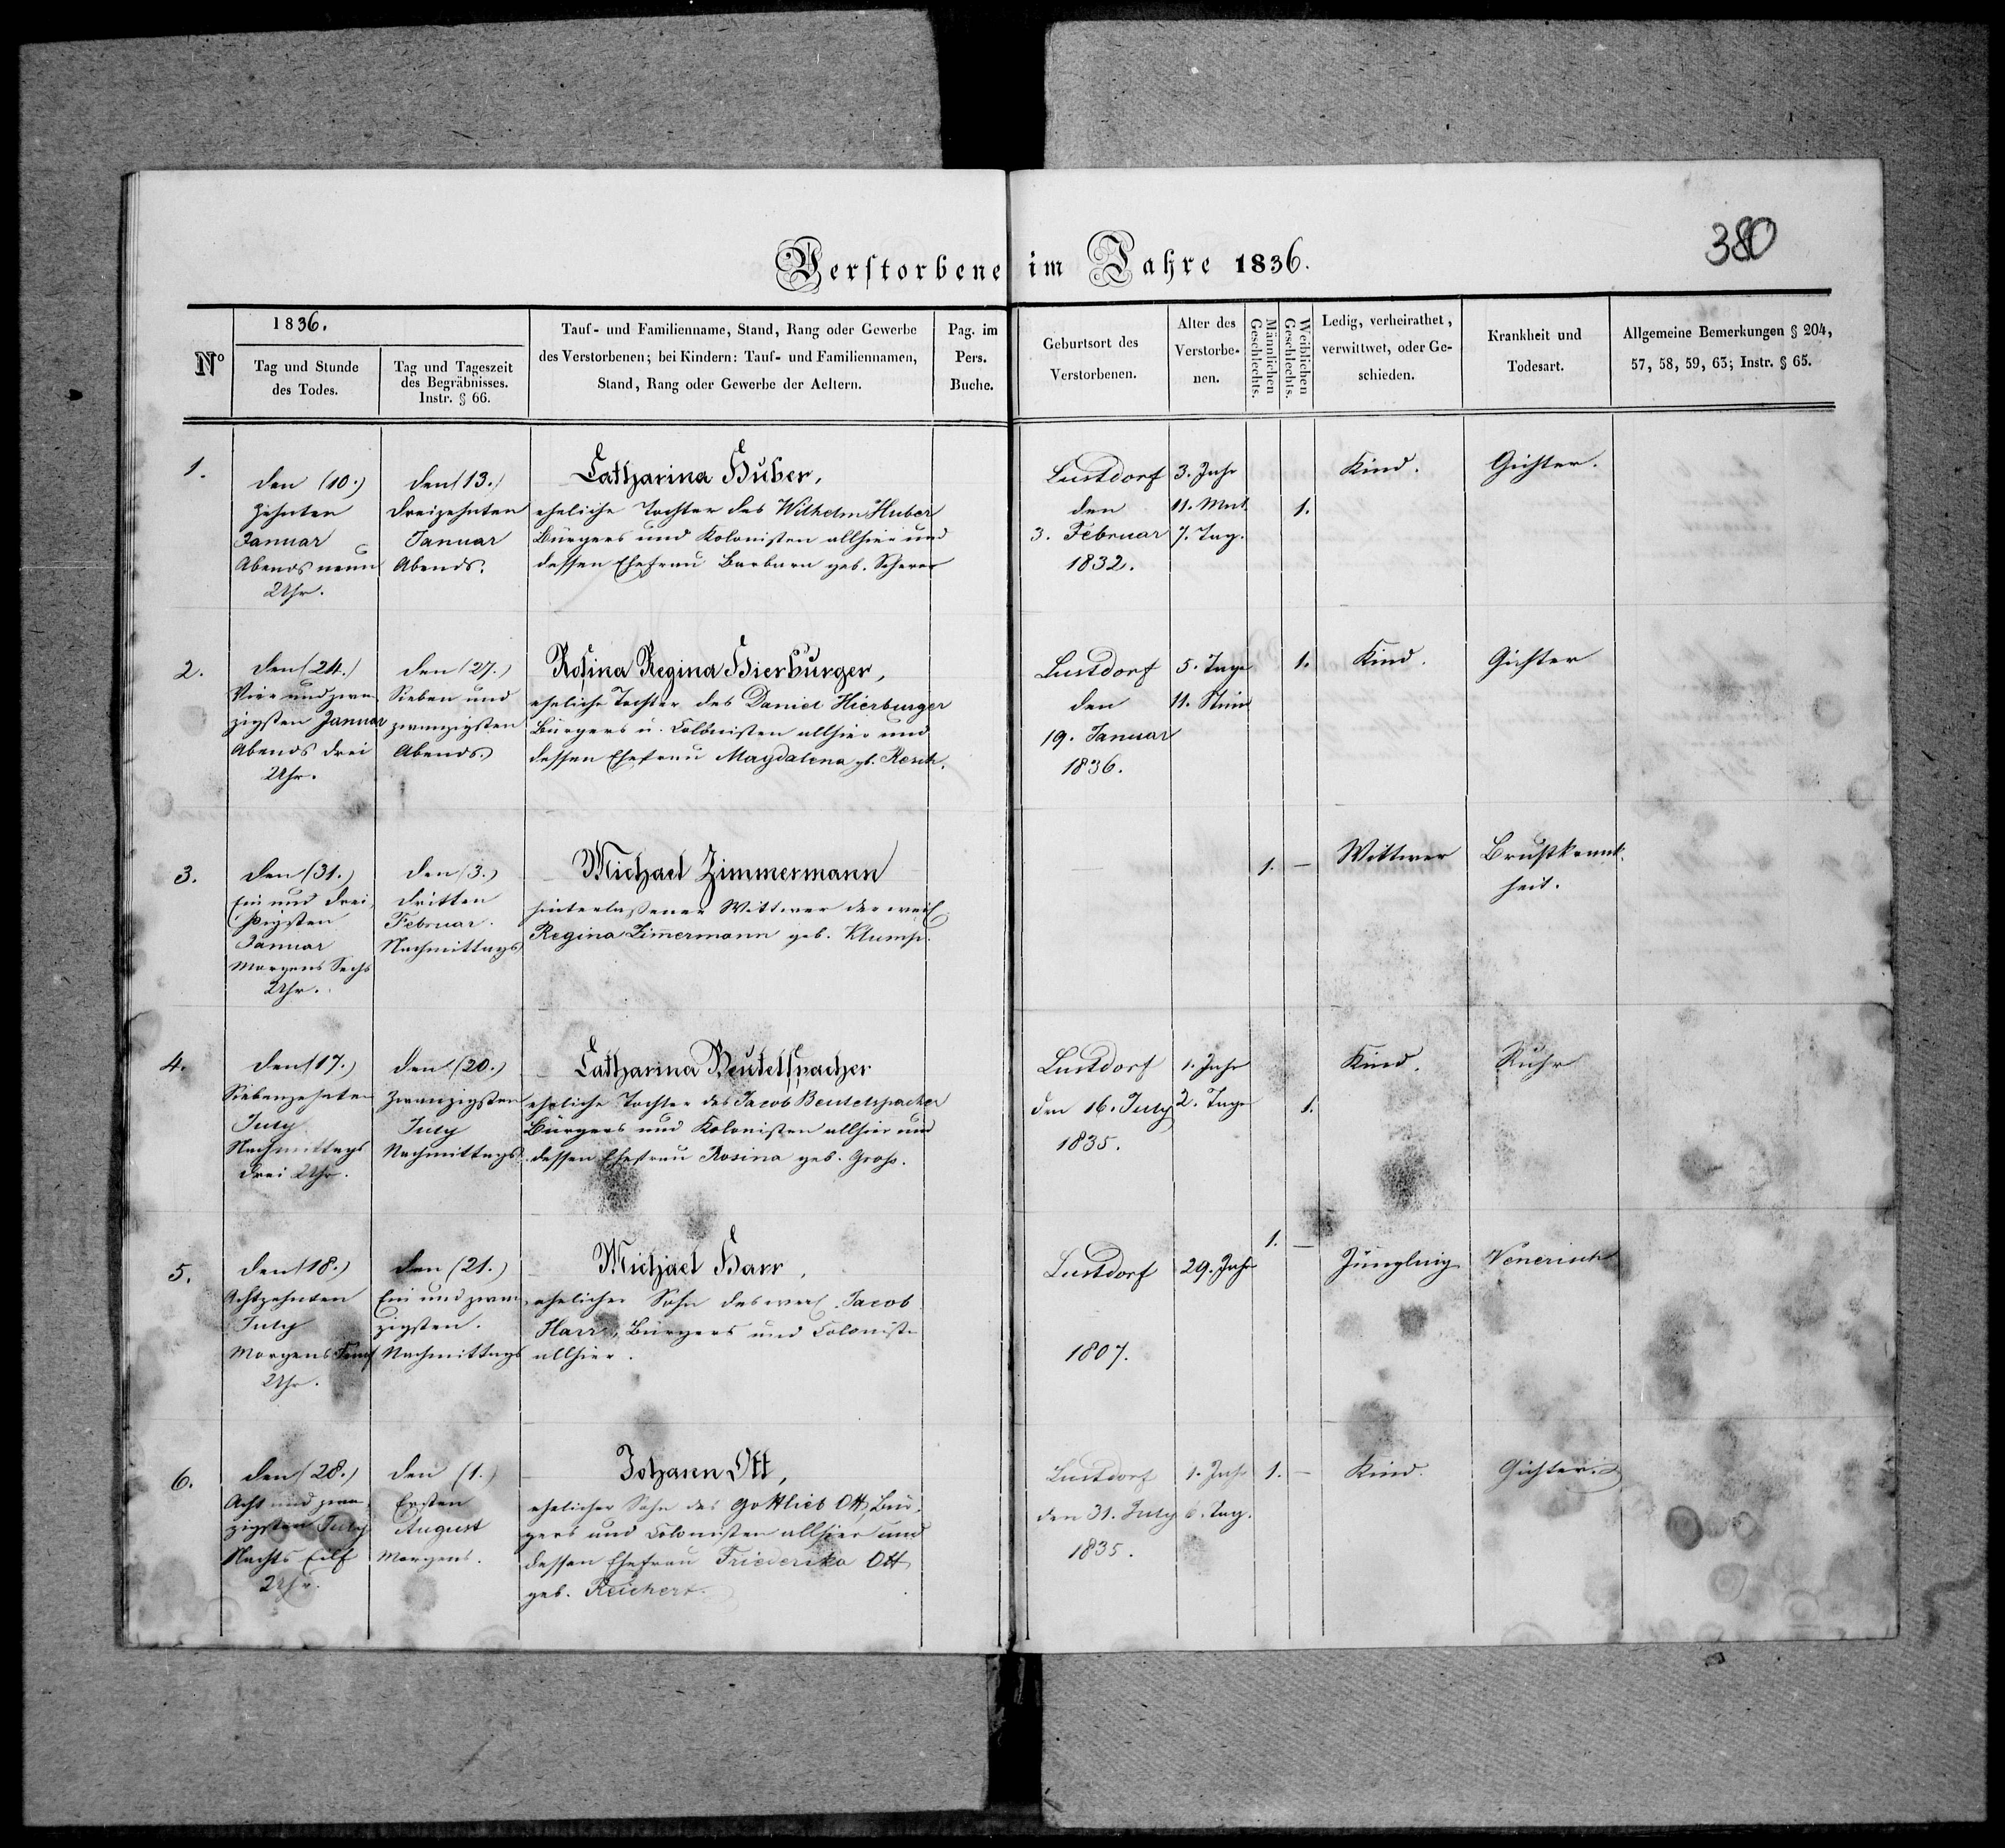 380
Verstorbene im Jahre 1836.
N°
1836.
Tag und Stunde
des Todes.
Tag und Tageszeit
des Begräbnisses.
Instr. § 66.
Tauf- und Familienname, Stand, Rang oder Gewerbe
des Verstorbenen; bei Kindern: Tauf- und Familiennamen,
Stand, Rang oder Gewerbe der Aeltern.
Pag. im
Pers.
Buche.
Geburtsort des
Verstorbenen.
Alter des
Verstorbe-
nen.
Männlichen
Geschlechts.
Weiblichen
Geschlechts.
Ledig, verheirathet,
verwittwet, oder Ge-
schieden.
Krankheit und
Todesart.
Allgemeine Bemerkungen § 204,
57, 58, 59, 63; Instr. § 65.
1.
den (10.)
Zehnten
Januar
Abends neun
Uhr.
den (13.)
dreizehnten
Januar
Abends.
Catharina Huber,
eheliche Tochter des Wilhelm Huber
Bürgers und Kolonisten allhier und
dessen Ehefrau Barbara geb. Scherer
Lustdorf
den
3. Februar
1832.
3. Jahr
11. Mnt.
7. Tag.
1.
Kind.
Gichter.
2.
den (24.)
Vier und zwan
zigsten Januar
Abends drei
Uhr.
den (27.)
Sieben und
zwanzigsten
Abends.
Rosina Regina Hierburger,
eheliche Tochter des Daniel Hierburger
Bürgers u. Colonisten allhier und
dessen Ehefrau Magdalena gb.
Lustdorf
den
19. Januar
1836.
5. Tage
11. Stun
1.
Kind.
Gichter
3.
den (31.)
Ein und drei
ßigsten
Januar
Morgens Sechs
Uhr.
den (3.)
dritten
Februar.
Nachmittags
Michael Zimmermann
hinterlaßener Wittwer der weil.
Regina Zimmermann geb. Klump.
1. –
Wittwer
Brustkrank-
heit.
4.
den (17.)
Siebenzehnten
July
Nachmittags
drei Uhr.
den (20.)
Zwanzigsten
July
Nachmittags
Catharina Beutelspacher
eheliche Tochter des Jacob Beutelspacher
Bürgers und Kolonisten allhier und
dessen Ehefrau Rosina geb. Groß.
Lustdorf
den 16. July
1835.
1. Jahr
2. Tage
1.
Kind.
Ruhr
5.
den (18.)
Achtzehnten
July
Morgens Fünf
Uhr.
den (21.)
Ein und zwan
zigsten.
Nachmittags
Michael Harr,
ehelicher Sohn des weil. Jacob
Harr, Bürgers und Coloniste
allhier.
Lustdorf
1807.
29. Jahr
1. –
Jüngling
Venerisch
6.
den (28.)
Acht und zwan
zigsten July
Nachts Eilf
Uhr.
den (1.)
Ersten
August
Morgens.
Johann Ott,
ehelicher Sohn des Gottlieb Ott, Bür-
gers und Colonisten allhier und
dessen Ehefrau Friederika Ott
geb. Reichert.
Lustdorf
den 31. July
1835.
1. Jahr
6. Tag.
1. –
Kind.
Gichter.